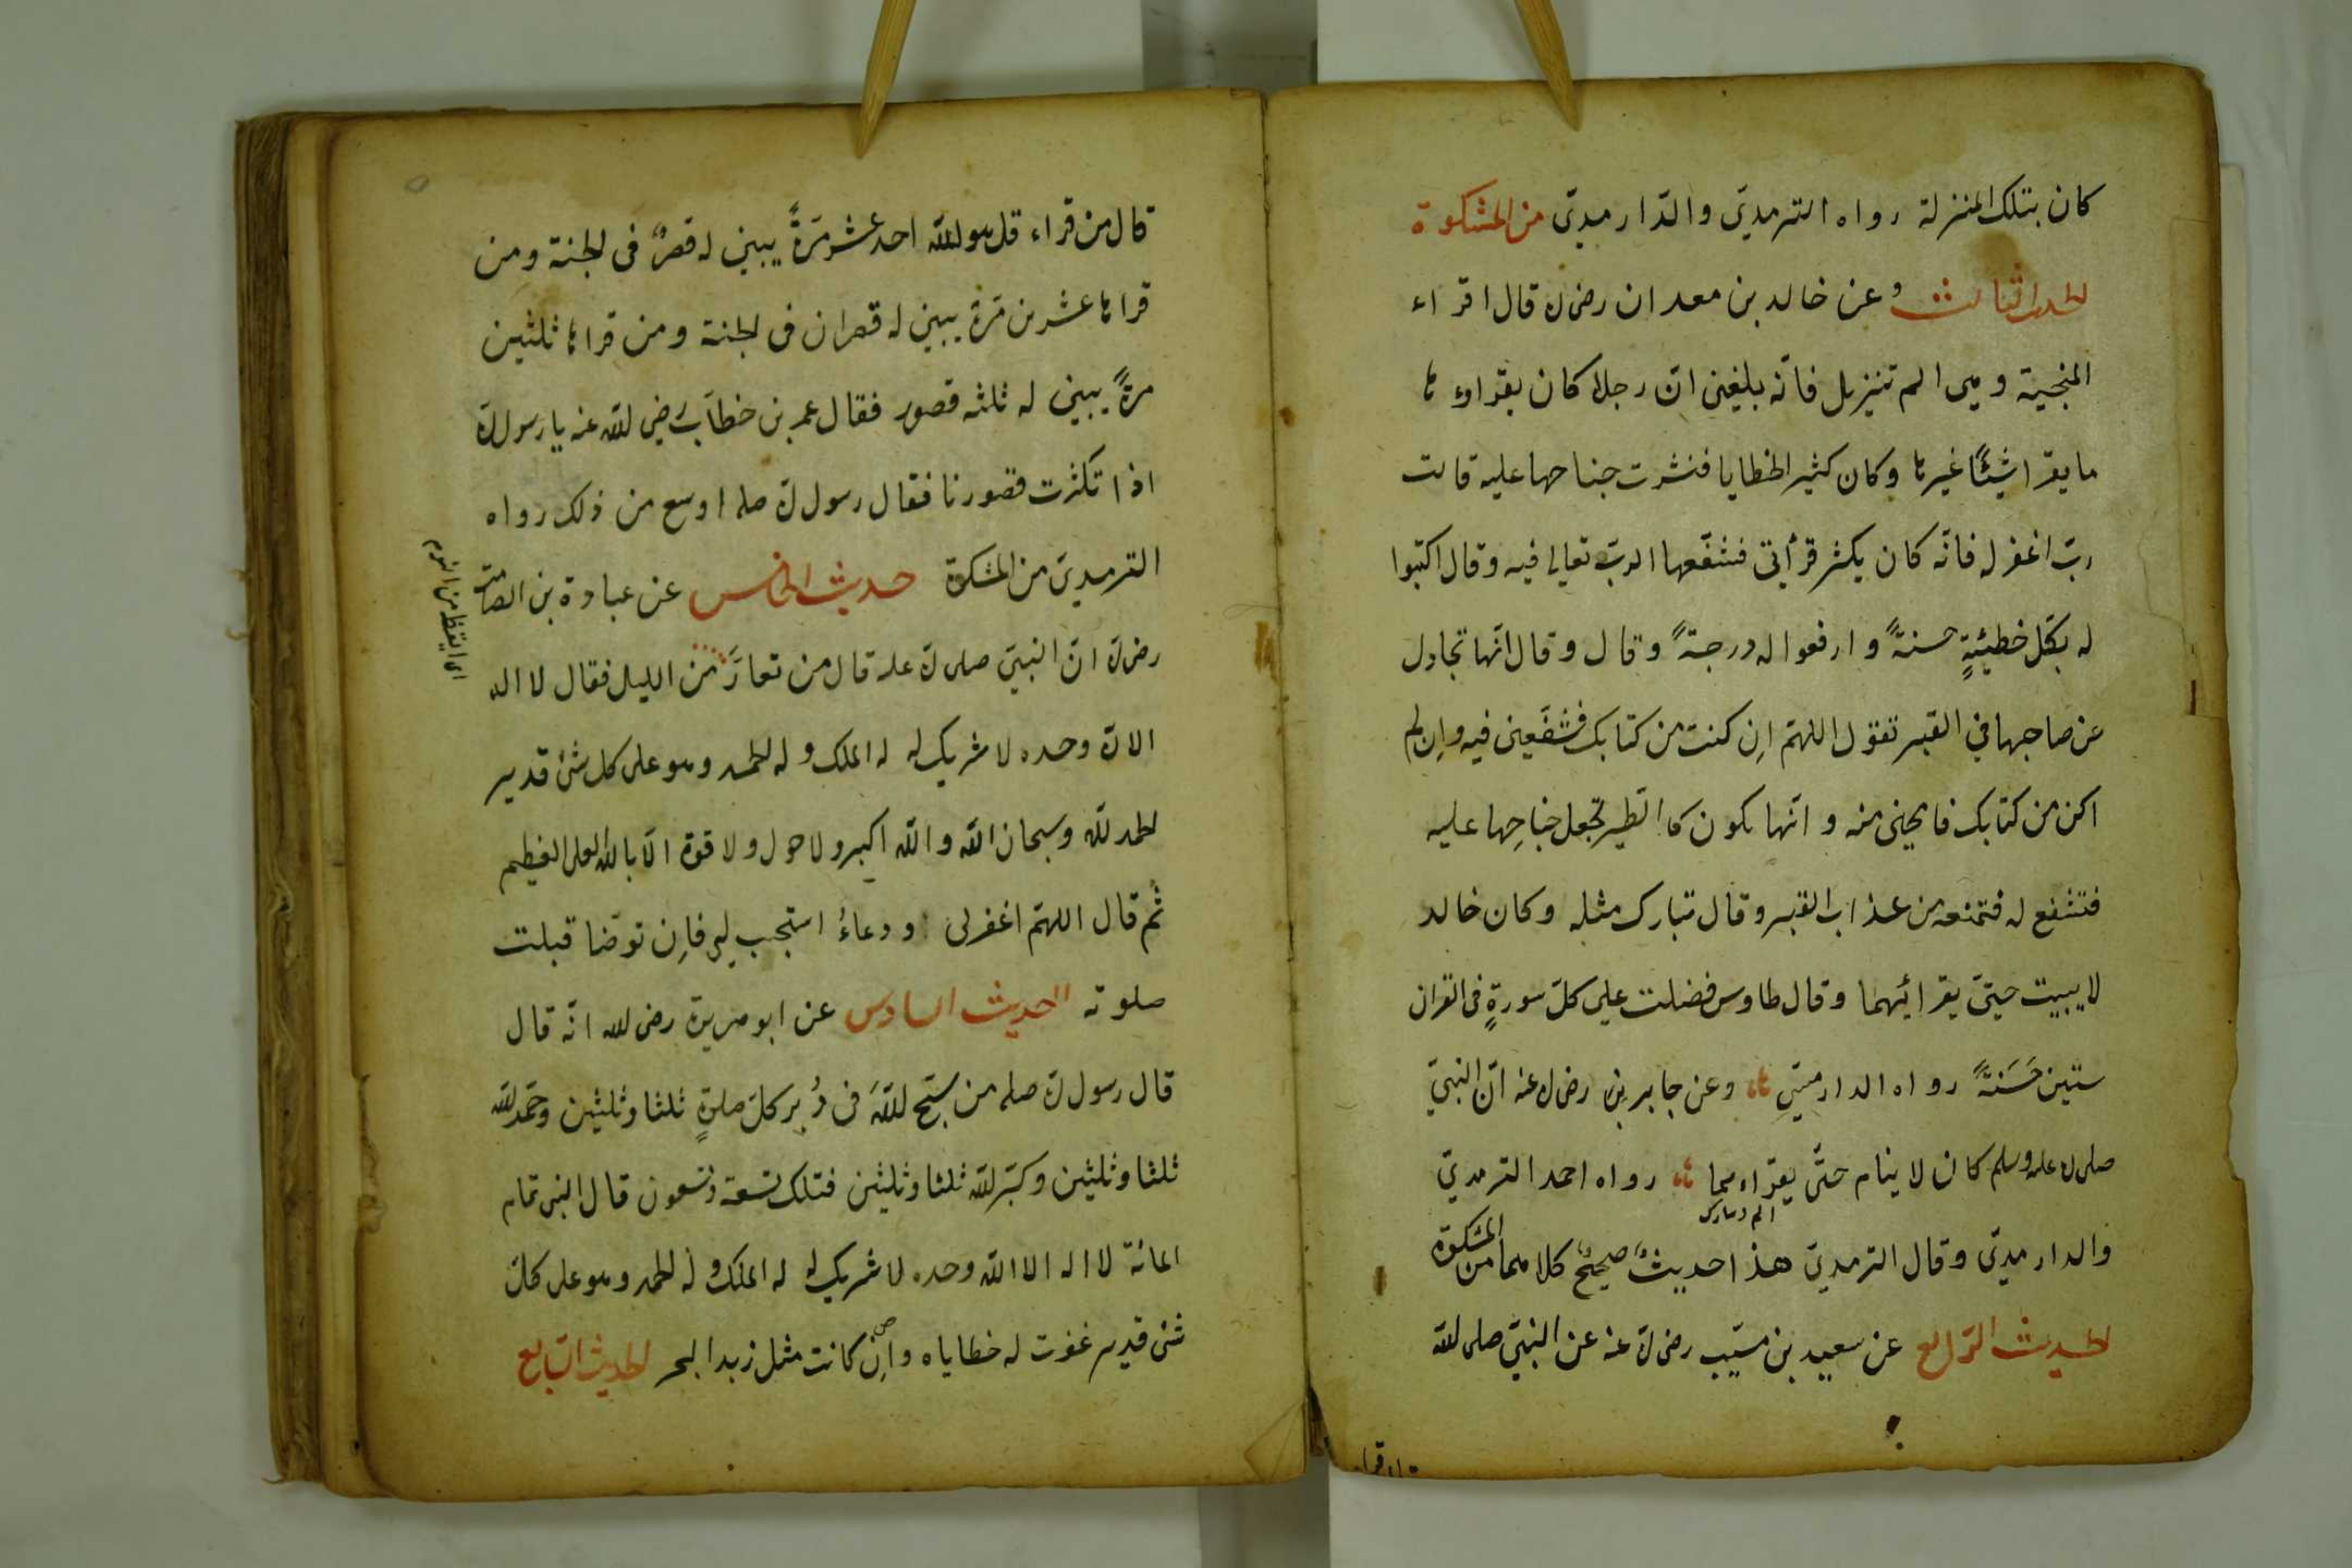 كان بتلك المنزلة رواه الترمديّ والدّارمديّ من المشكوة
الحديث الثالث وعن خالد بن معدان رضى ﷲ قال اقراء
المنجية وهى الم تنزيل فانّه بلغنى انّ رجلا كان يقراوءها
ما يقرا شيئًا غيرها وكان كثير الخطايا فنشرت جناحها عليه قالت
ربّ اغفر له فانّه كان يكثر قرأتى فشفّعها الربّ تعالى فيه وقال اكتبوا
له بكلّ خطيئةٍ حسنةً وارفعوا له درجةً وقال وقال انّها تجادل
عن صاحبها في القبر تقول اللهمّ اِن كنت من كتابك فشفّعنى فيه واِن لم
اكن من كتابك فامحنى منه وانّها تكون كاالطّير تجعل جناحِها عليه
فتشفع له فتمنعه من عذاب القبر وقال تبارك مثله وكان خالد
لا يبيت حيتّى يقرائيهما وقال طاوس فضلت على كلّ سورةٍ فى القران
ستين حَسَنَةً رواه الدارميّ وعن جابر بن رضى ﷲ عنه انّ النبيّ
صلى ﷲ عله وسلم كان لا ينام حتّى يقراءهما رواه احمد الترمديّ
الم وتبارك
والدارميديّ وقال الترمديّ هذا حديثٌ صحيحٌ كلاهما من المشكوة
الحديث الرّابع عن سعيد بن مسيّب رضى ﷲ عنه عن النبيّ صلى ﷲ
قال من قراء قل هو ﷲ احد عشر مَرّةً يبنى له قصرٌ فى الجنة ومن
قراها عشرين مَرّة يبنى له قصران فى الجنة ومن قراها ثلثين
مرّةً يبنى له ثلثه قصور فقال عمر بن خطّاب رضى ﷲ عنه يا رسول ﷲ
اذا تكثرت قصورنا فقال رسول ﷲ صلم اوسع من ذلك رواه
الترمديّ من المشكوة حديث الخامس عن عبادة بن الصامت
رضى ﷲ انّ النبيّ صلى ﷲ عله قال من تعارَّ من الليل فقال لا اله
اى ايقظ من النوم
الا ﷲ وحده لا شريك له له الملك وله الحمد وهو على كل شئ قدير
الحمد ﷲ وسبحان ﷲ وﷲ اكبر ولا حول ولا قوة الّا باﷲ العلى العظيم
ثُم قال اللهمّ اغفرلى ودعاءُ استجيب له فاِن توضّا قبلت
صلوته الحديث السادس عن ابو هريرة رضى ﷲ انّه قال
قال رسول ﷲ صلم من سبّح ﷲَ فى دُبر كلّ صلوةٍ ثلثا وثلثين وحمّد ﷲ
ثلثا وثلثين وكبّر ﷲ ثلثا وثلثين فتلك تسعة وتسعون قال النبى تمام
المائة لا اله الا ﷲ وحده لا شريك له له الملك وله الحمد وهو على كلّ
شئ قدير غفرت له خطاياه واِن كانت مثل زبد البحر الحديث السّابع